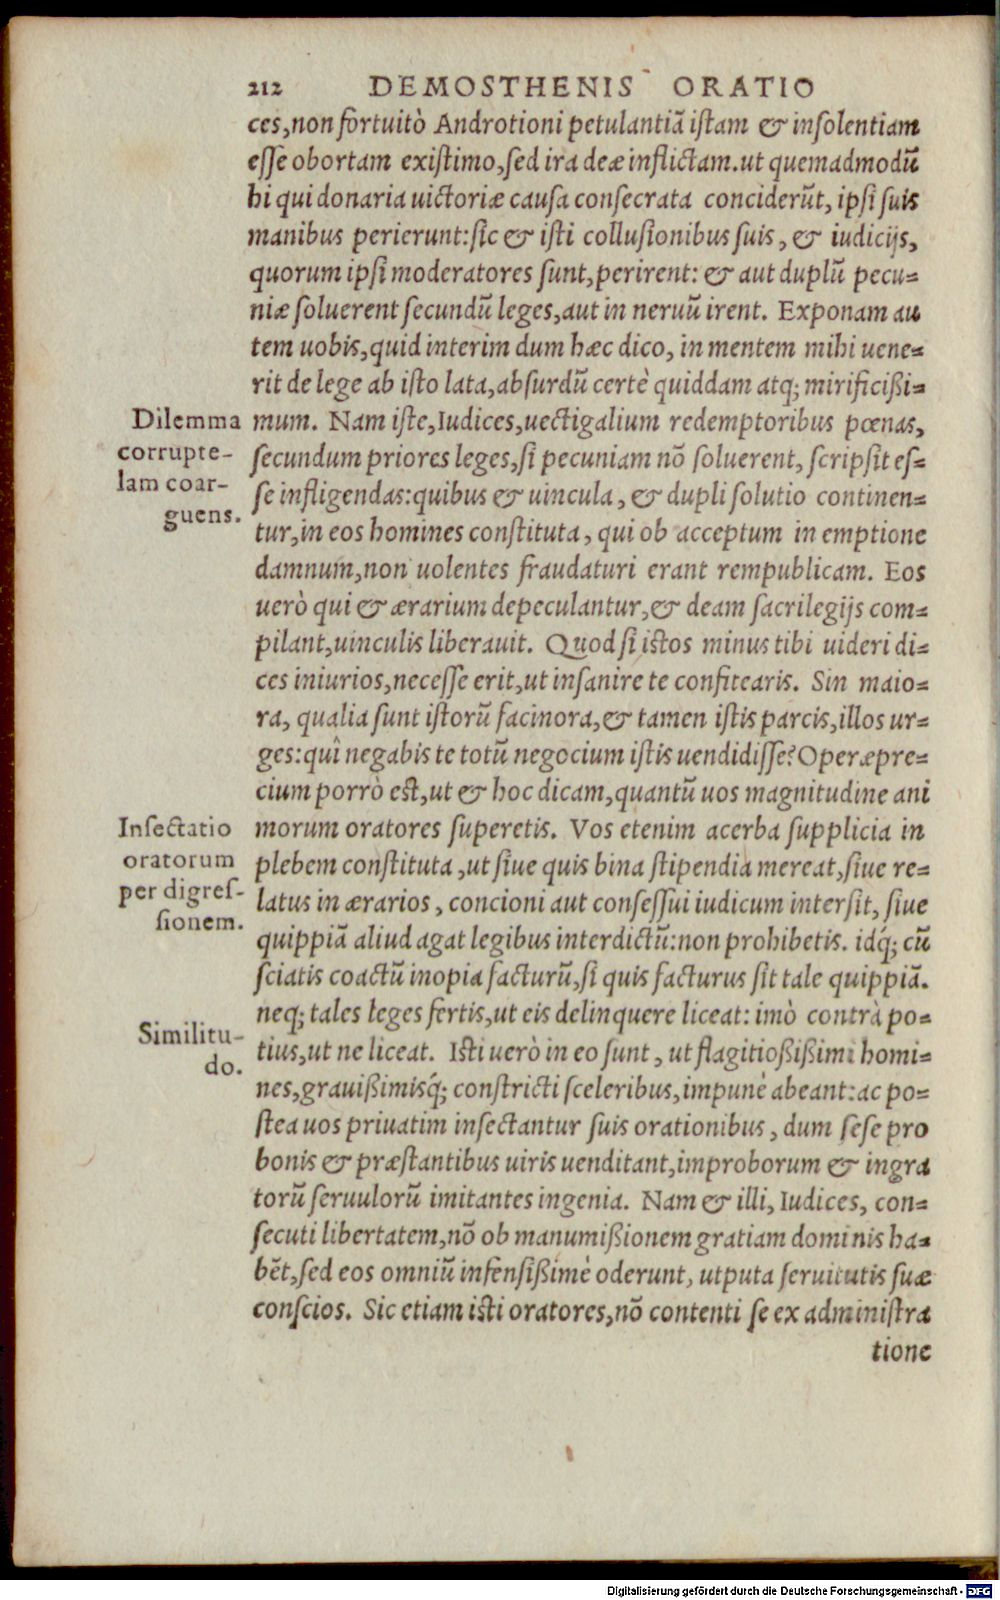 212 DEMOSTHENIS ORATIO
ces,non fortuitò Androtioni petulantiã istam & insolentiam
esse obortam existimo,sed ira deæ inflictam.ut quemadmodũ
hi qui donaria uictoriæ causa consecrata conciderũt, ipsi suis
manibus perierunt:sic & isti collusionibus suis, & iudicijs,
quorum ipsi moderatores sunt,perirent: & aut duplũ pecu=
niæ soluerent secundũ leges,aut in neruũ irent. Exponam au
tem uobis,quid interim dum hæc dico, in mentem mihi uene=
rit de lege ab isto lata,absurdũ certè quiddam atq; mirificißi=
Dilemma
corrupte-
lam coar-
guens.
mum. Nam iste,Iudices,uectigalium redemptoribus pœnas,
secundum priores leges,si pecuniam nõ soluerent, scripsit es=
se infligendas:quibus & uincula, & dupli solutio continen=
tur,in eos homines constituta, qui ob acceptum in emptione
damnum,non uolentes fraudaturi erant rempublicam. Eos
uerò qui & ærarium depeculantur,& deam sacrilegijs com=
pilant,uinculis liberauit. Quod si istos minus tibi uideri di=
ces iniurios,necesse erit,ut insanire te confitearis. Sin maio=
ra, qualia sunt istorũ facinora,& tamen istis parcis,illos ur=
ges:quî negabis te totũ negocium istis uendidisse? Operæpre=
cium porrò est,ut & hoc dicam,quantũ uos magnitudine ani
Insectatio
oratorum
per digres-
sionem.
morum oratores superetis. Vos etenim acerba supplicia in
plebem constituta,ut siue quis bina stipendia mereat,siue re=
latus in ærarios, concioni aut consessui iudicum intersit, siue
quippiã aliud agat legibus interdictũ:non prohibetis. idq́; cũ
sciatis coactũ inopia facturũ,si quis facturus sit tale quippiã.
neq; tales leges fertis,ut eis delinquere liceat: imò contrà po=
Similitu-
do.
tius,ut ne liceat. Isti uerò in eo sunt, ut flagitioßißimi homi=
nes,grauißimisq́; constricti sceleribus,impunè abeant:ac po=
stea uos priuatim insectantur suis orationibus, dum sese pro
bonis & præstantibus uiris uenditant,improborum & ingra
torũ seruulorũ imitantes ingenia. Nam & illi, Iudices, con=
secuti libertatem,nõ ob manumißionem gratiam dominis ha=
bẽt,sed eos omniũ infensißimè oderunt, utputa seruitutis suæ
conscios. Sic etiam isti oratores,nõ contenti se ex administra
tione
Digitalisierung gefördert durch die Deutsche Forschungsgemeinschaft - DFG